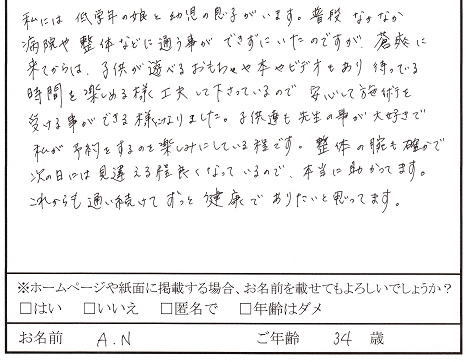 私には 低学年の娘と幼児の息子がいます。普段 なかなか
病院や 整体などに通う事が できずにいたのですが、蒼爽に
来てからは、子供が遊べるおもちゃや本やビデオもあり 待っている
時間を楽しめる様 工夫して下さっているので 安心して施術を
受ける事ができる様になりました。子供達も先生の事が大好きで
私が 予約をするのを楽しみにしている程です。整体の腕も確かで
次の日には 見違える程良くなっているので、本当に助かってます。
これからも通い続けて ずっと健康で ありたいと思ってます。
※ホームページや紙面に掲載する場合、お名前を載せてもよろしいでしょうか?
□はい □いいえ □匿名で □年齢はダメ
お名前 A.N ご年齢 34 歳